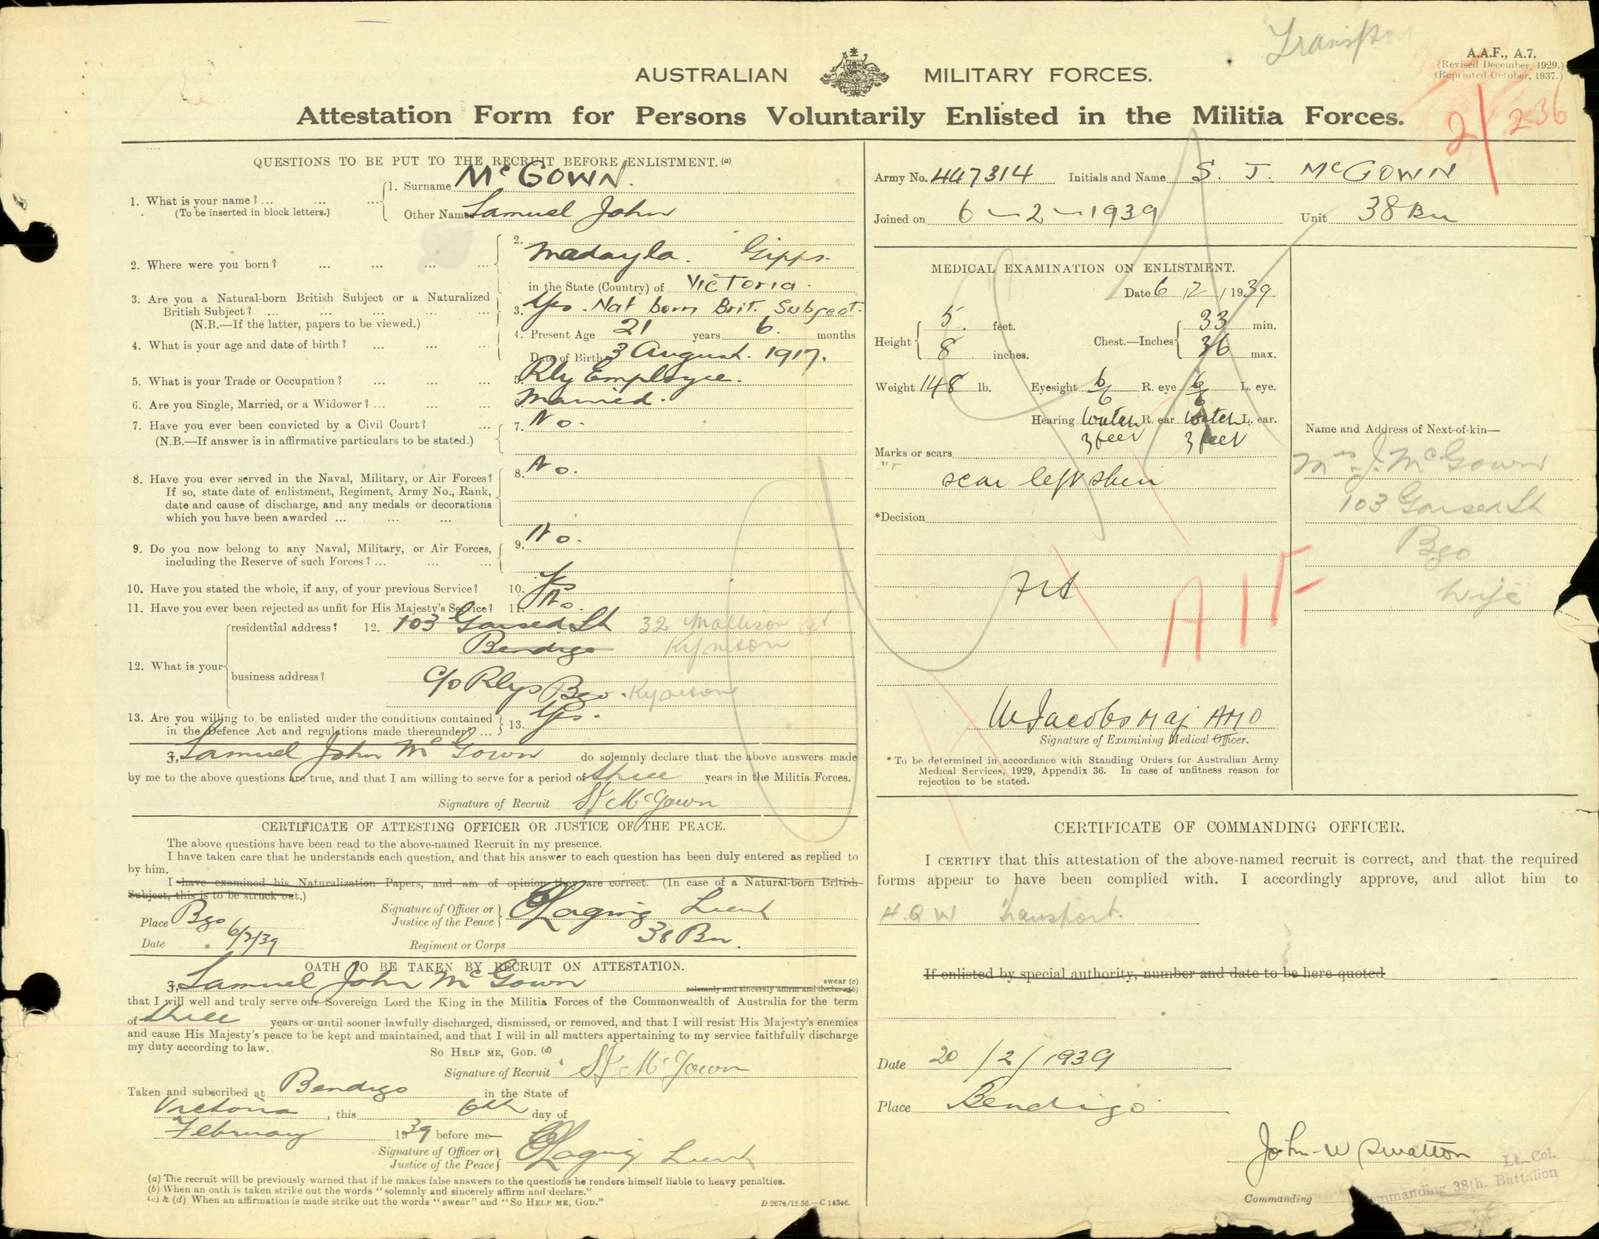 Transport
A.A.F., A.7.
(Revised December, 1929.)
(Reprinted October, 1937.)
AUSTRALIAN MILITARY FORCES.
Attestation Form for Persons Voluntarily Enlisted in the Militia Forces.
2/236
QUESTIONS TO BE PUT TO THE RECRUIT BEFORE ENLISTMENT.(a)
1. What is your name? ... ... ...
(To be inserted in block letters.)
1. Surname McGOWN.
Other Names Samuel John
2. Where were you born? ... ... ... ...
2. Gipps.
in the State (Country) of Victoria.
3. Are you a Natural-born British Subject or a Naturalized
British Subject? ... ... ... ... ...
(N.B.—If the latter, papers to be viewed.)
3. Yes. Nat born Brit. Subject.
4. What is your age and date of birth? ... ...
4. Present Age 21 years 6 months
Date of Birth 3 August. 1917.
5. What is your Trade or Occupation? ... ...
5. Rly Employee.
6. Are you Single, Married, or a Widower? ... ... ...
Married.
7. Have you ever been convicted by a Civil Court? ...
(N.B.—If answer is in affirmative particulars to be stated.)
7. No.
8. Have you ever served in the Naval, Military, or Air Forces?
If so, state date of enlistment, Regiment, Army No., Rank,
date and cause of discharge, and any medals or decorations
which you have been awarded ... ... ...
8. No.
9. Do you now belong to any Naval, Military, or Air Forces,
including the Reserve of such Forces? ... ... ...
9. No.
10. Have you stated the whole, if any, of your previous Service?
10. Yes
11. Have you ever been rejected as unfit for His Majesty's Service?
11. No.
12. What is your
residential address? 12. 103 Garsed St 32 Mollison St
Bendigo Kyneton
business address?
c/o Rlys Bgo. Kyneton
13. Are you willing to be enlisted under the conditions contained
in the Defence Act and regulations made thereunder? ...
13. Yes.
I, Samuel John McGown do solemnly declare that the above answers made
by me to the above questions are true, and that I am willing to serve for a period of three years in the Militia Forces.
Signature of Recruit SJ McGown
CERTIFICATE OF ATTESTING OFFICER OR JUSTICE OF THE PEACE.
The above questions have been read to the above-named Recruit in my presence.
I have taken care that he understands each question, and that his answer to each question has been duly entered as replied to
by him.
I have examined his Naturalization Papers, and am of opinion they are correct. (In case of a Natural-born British
Subject, this is to be struck out.)
Place Bgo
Date 6/2/39
Signature of Officer or
Justice of the Peace
Lieut
Regiment or Corps 38 Bn.
OATH TO BE TAKEN BY RECRUIT ON ATTESTATION.
I, Samuel John McGown swear (c)
solemnly and sincerely affirm and declare(b)
that I will well and truly serve our Sovereign Lord the King in the Militia Forces of the Commonwealth of Australia for the term
of three years or until sooner lawfully discharged, dismissed, or removed, and that I will resist His Majesty's enemies
and cause His Majesty's peace to be kept and maintained, and that I will in all matters appertaining to my service faithfully discharge
my duty according to law.
SO HELP ME, GOD. (d)
Signature of Recruit SJ McGown
Taken and subscribed at Bendigo in the State of
Victoria, this 6th day of
February 1939 before me—
Signature of Officer or
Justice of the Peace
Lieut
(a) The recruit will be previously warned that if he makes false answers to the questions he renders himself liable to heavy penalties.
(b) When an oath is taken strike out the words "solemnly and sincerely affirm and declare."
(c) & (d) When an affirmation is made strike out the words "swear" and "SO HELP ME, GOD."
Army No. 447314 Initials and Name S. J. McGOWN
Joined on 6-2-1939 Unit 38 Bn
MEDICAL EXAMINATION ON ENLISTMENT.
Date 6/2/1939
Height 5 feet. 8 inches.
Chest.—Inches 33 min. 36 max.
Weight 148 lb. Eyesight 6/6 R. eye 6/6 L. eye.
Hearing watch 3 feet R. ear watch 3 feet L. ear.
Marks or scars
scar left shin
*Decision
Fit
AIF
W Jacobs Maj AMO
Signature of Examining Medical Officer.
* To be determined in accordance with Standing Orders for Australian Army
Medical Services, 1929, Appendix 36. In case of unfitness reason for
rejection to be stated.
Name and Address of Next-of-kin—
Mrs J. McGown
103 Garsed St
Bgo
Wife
CERTIFICATE OF COMMANDING OFFICER.
I CERTIFY that this attestation of the above-named recruit is correct, and that the required
forms appear to have been complied with. I accordingly approve, and allot him to
H.Q.W Transport.
If enlisted by special authority, number and date to be here quoted
Date 20/2/1939
Place Bendigo
John W Swatton
Lt. Col.
Commanding Commanding 38th. Battalion